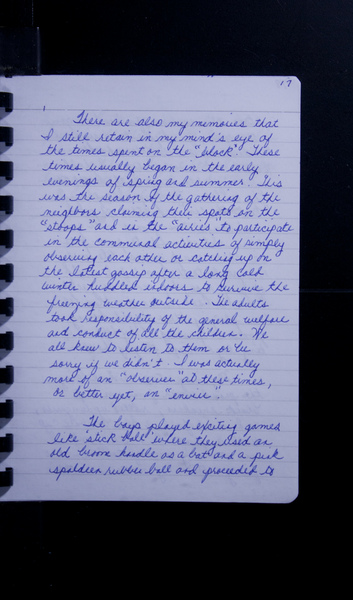 17
There are also my memories that
I still retain in my mind's eye of
the times spent on the "block". These
times usually began in the early
evenings of spring and summer. This
was the season of the gathering of the
neighbors claiming their spots on the
"stoops" and in the "airies" to participate
in the communal activities of simply
observing each other or catching up on
the latest gossip after a long cold
winter huddled indoors to survive the
freezing weather outside. The adults
took responsibility of the general welfare
and conduct of all the children. We
all knew to listen to them or be
sorry if we didn't. I was actually
more of an "observer" at these times,
or better yet, an "envier".
The boys played exciting games
like "stick ball" where they used an
old broom handle as a bat and a pink
spaldeen rubber ball and proceeded to